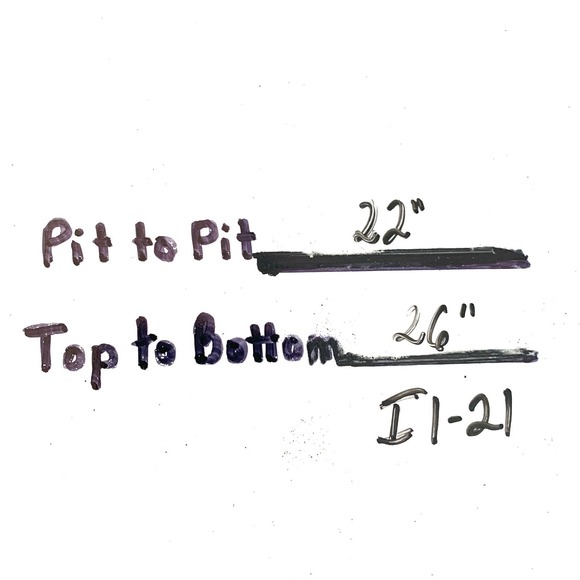 Pit to Pit 22"
Top to Bottom 26"
I1-21